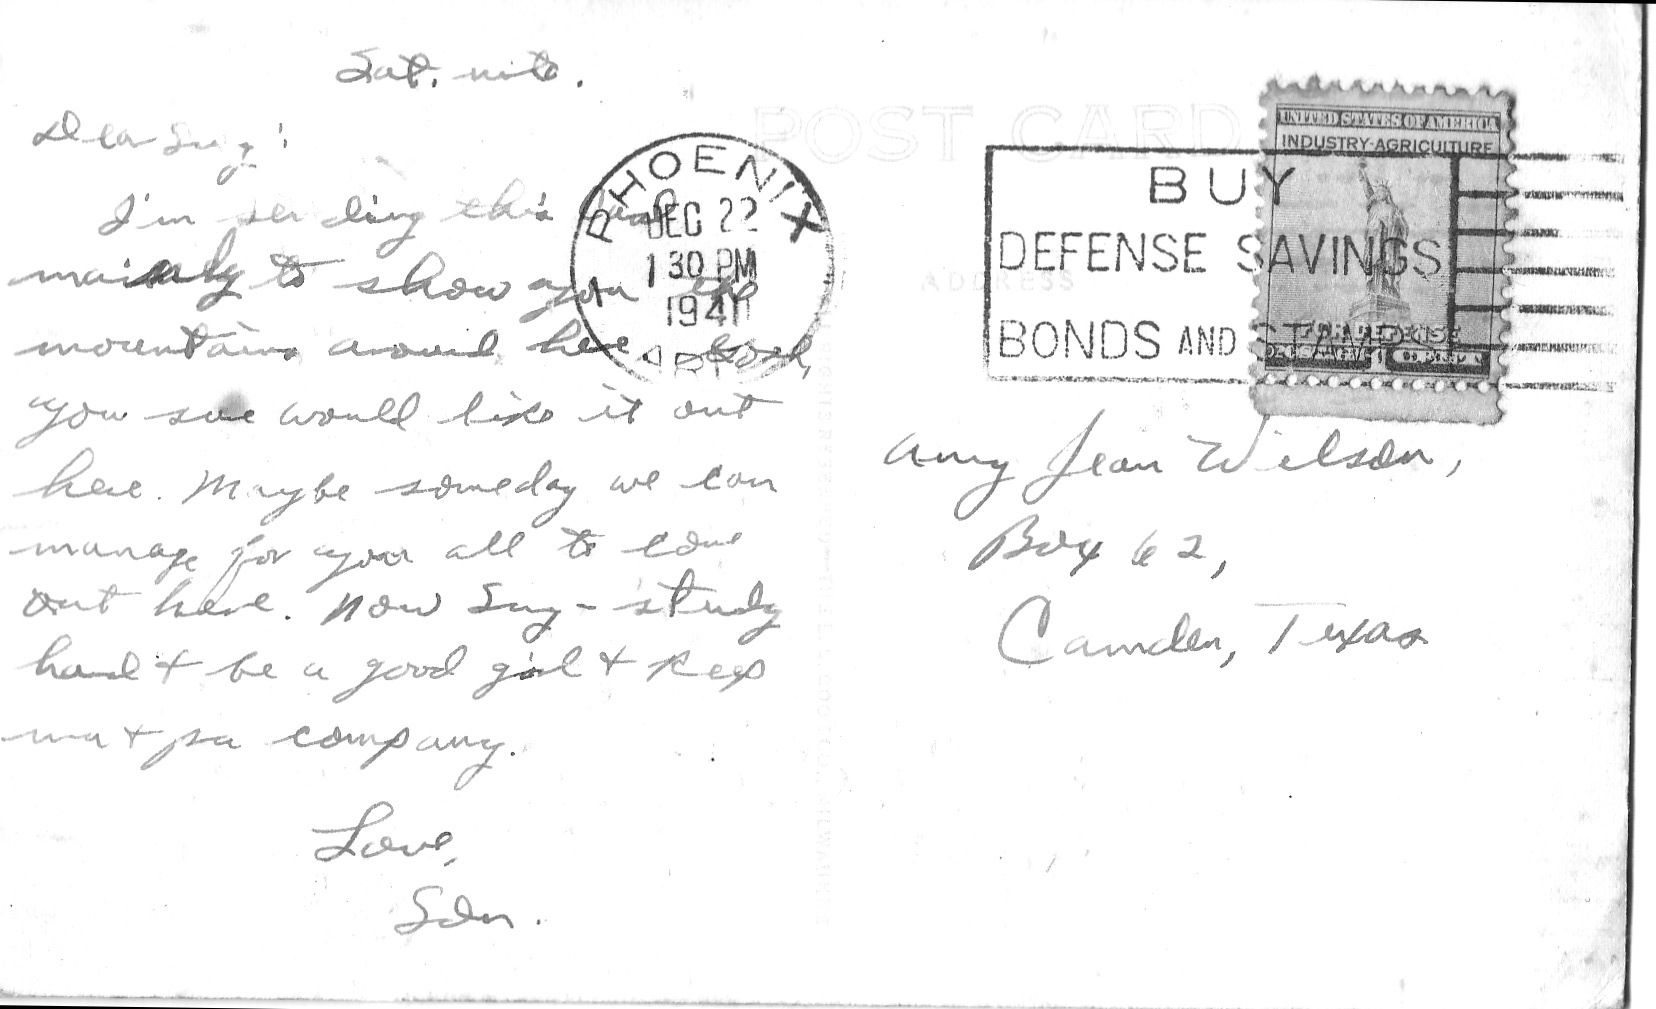 Sat. nite.
Dear Suzy:
I'm sending this card
mainly to show you the
mountains around here. Gosh,
you sure would like it out
here. Maybe someday we can
manage for you all to come
out here. Now Suzy - study
hard + be a good girl + keep
ma + pa company.
Love,
PHOENIX
DEC 22
1 30 PM
1941
ARIZ
POST CARD
ADDRESS
BUY
DEFENSE SAVINGS
BONDS AND STAMPS
UNITED STATES OF AMERICA
INDUSTRY-AGRICULTURE
FOR DEFENSE
Amy Jean Wilson,
Box 62,
Camden, Texas